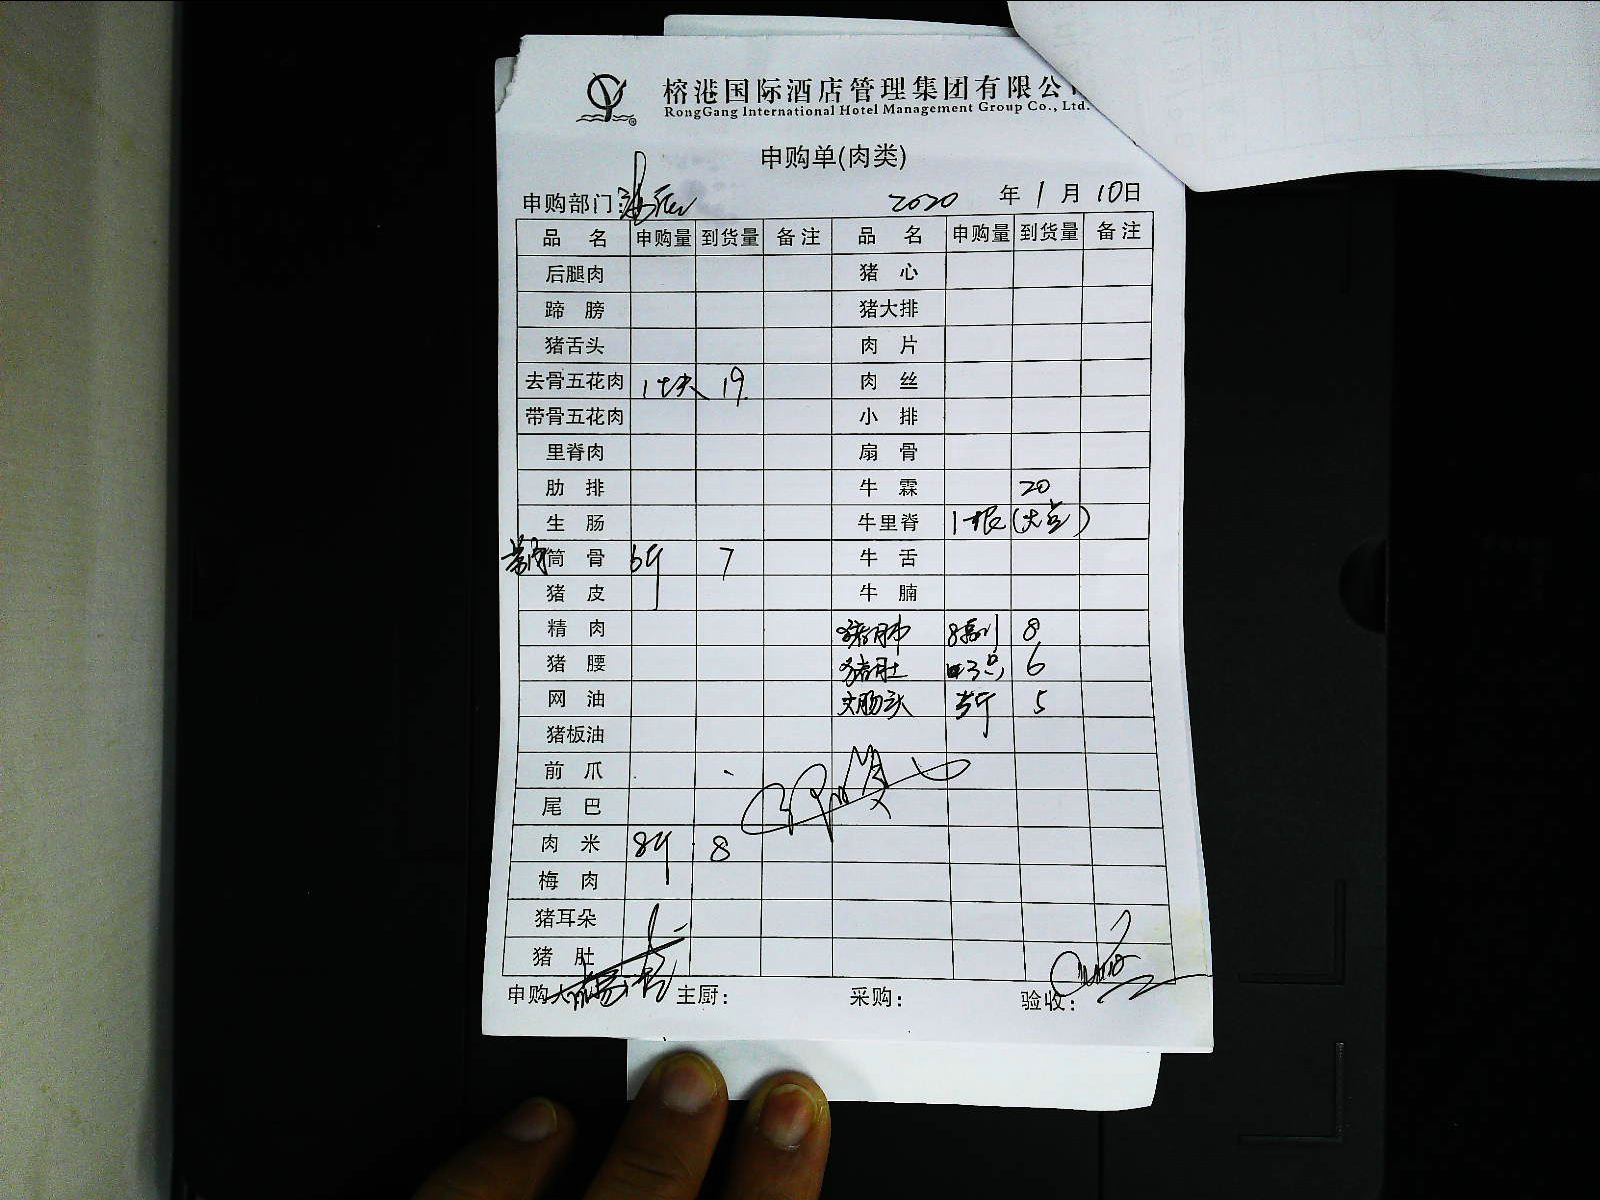 榕港国际酒店管理集团有限公
RongGang International Hotel Management Group Co., Ltd.
申购单(肉类)
申购部门:
2020 年 1 月 10 日
品 名 申购量 到货量 备注 品 名 申购量 到货量 备注
后腿肉 猪 心
蹄 膀 猪大排
猪舌头 肉 片
去骨五花肉 1块 19 肉 丝
带骨五花肉 小 排
里脊肉 扇 骨
肋 排 牛 霖 20
生 肠 牛里脊 1根(大点)
筒 骨 6斤 7 牛 舌
猪 皮 牛 腩
精 肉 猪肺 8副 8
猪 腰 猪肚 只 6
网 油 大肠头 5斤 5
猪板油
前 爪
尾 巴
肉 米 8斤 8
梅 肉
猪耳朵
猪 肚
申购人 主厨: 采购: 验收: